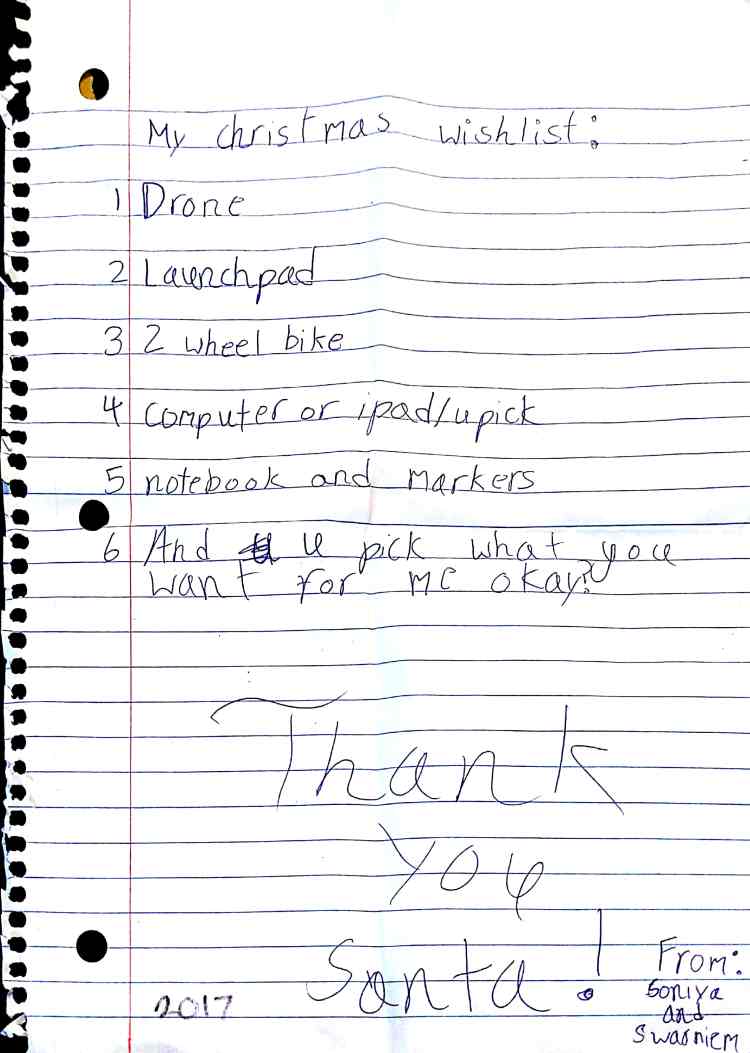 My christmas wishlist:
1 Drone
2 Launchpad
3 2 wheel bike
4 computer or ipad/u pick
5 notebook and markers
6 And u pick what you
want for me okay?
Thank
you
Santa!
From:
Soniya
and
Swarniem
2017